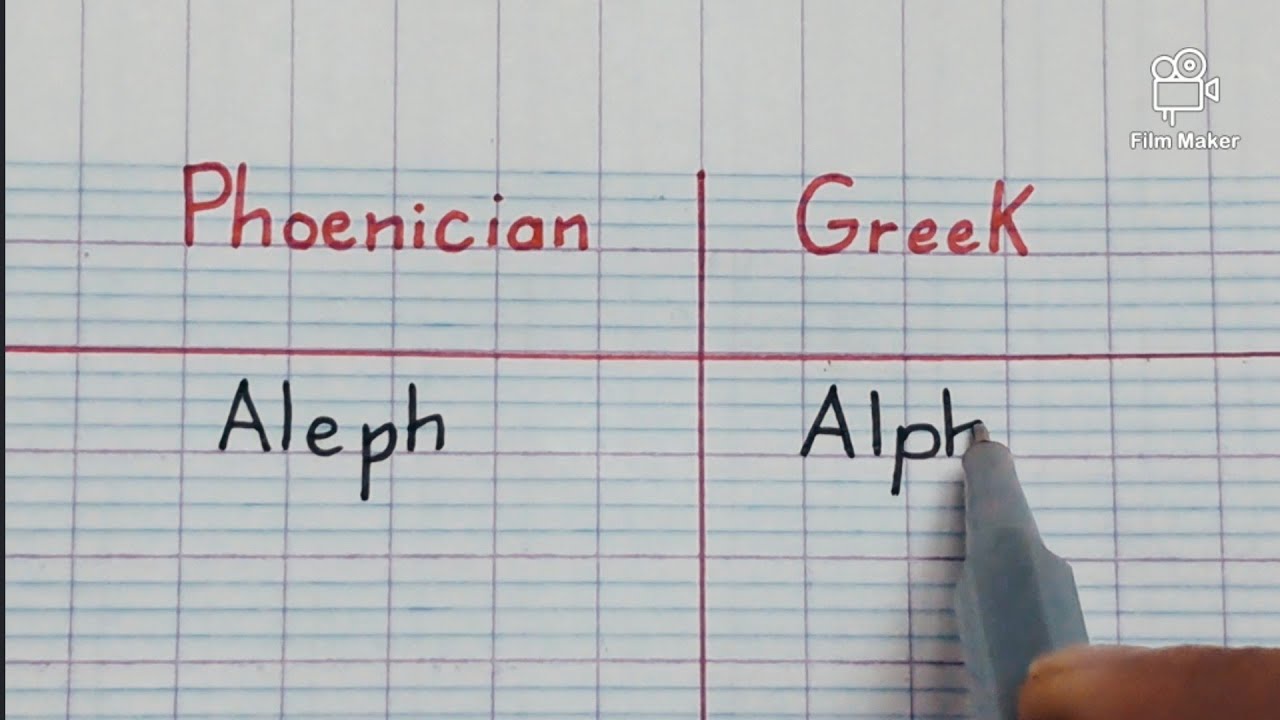 Film Maker
Phoenician GreeK
Aleph Alph